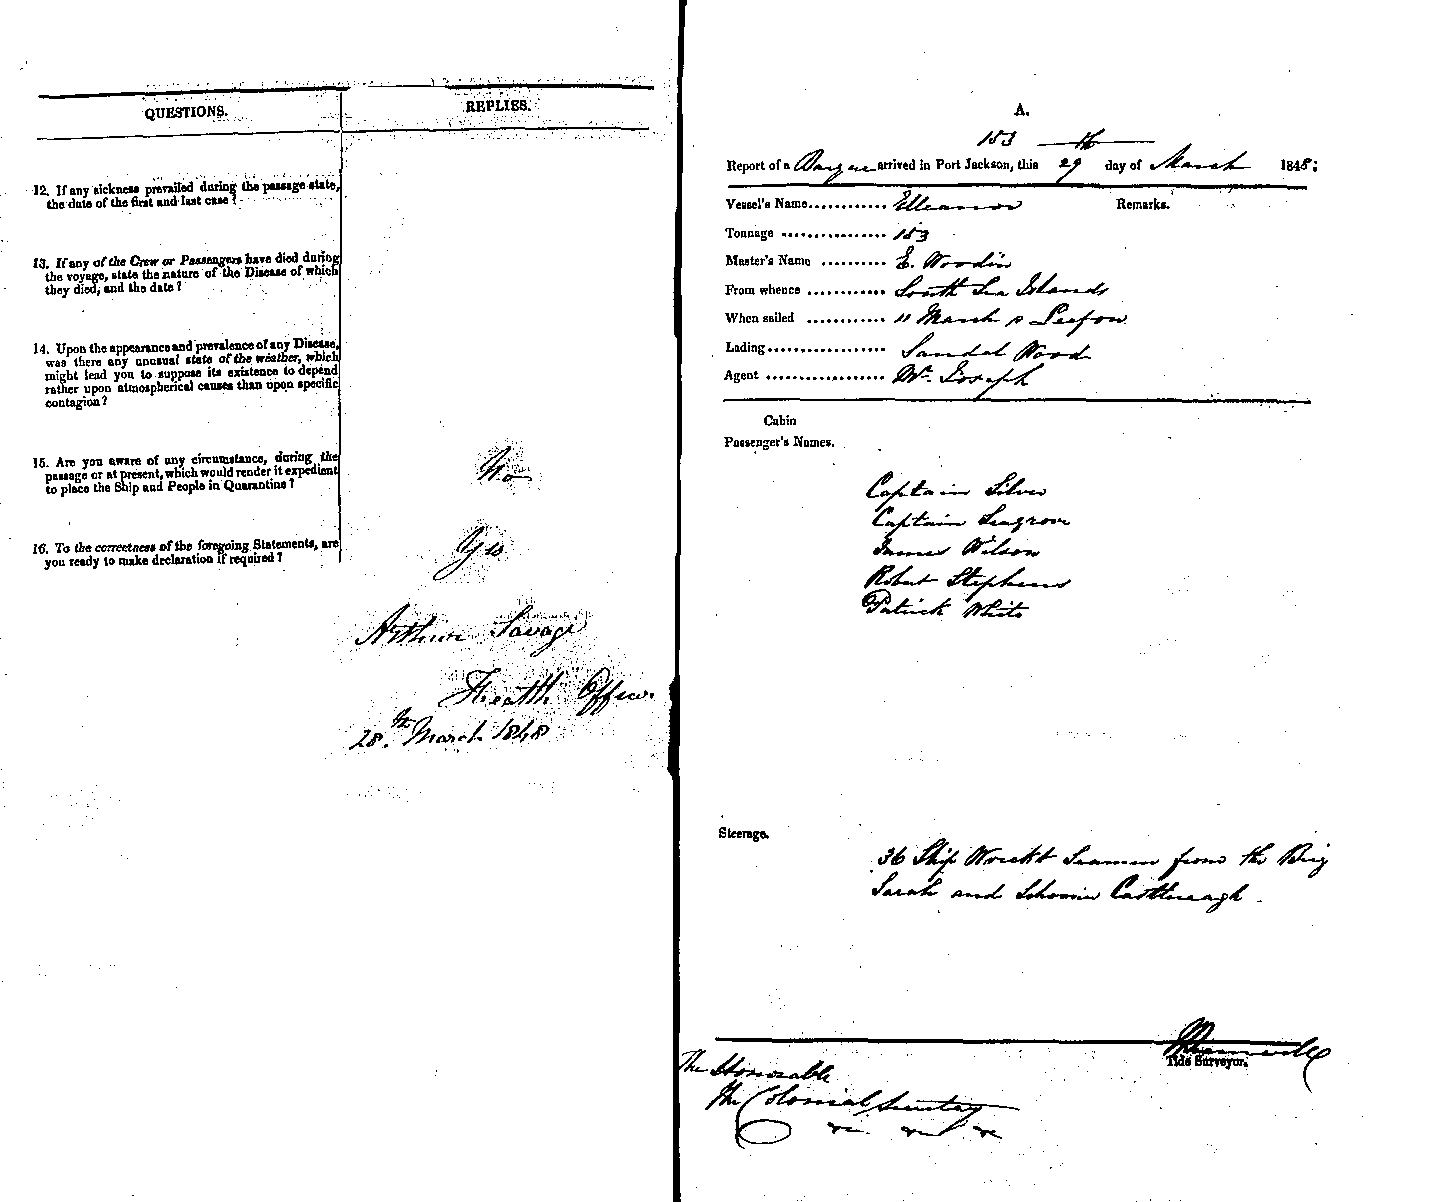 QUESTIONS.
REPLIES.
12. If any sickness prevailed during the passage state,
the date of the first and last case?
13. If any of the Crew or Passengers have died during
the voyage, state the nature of the Disease of which
they died, and the date?
14. Upon the appearance and prevalence of any Disease,
was there any unusual state of the weather, which
might lead you to suppose its existence to depend
rather upon atmospherical causes than upon specific
contagion?
15. Are you aware of any circumstance, during the
passage or at present, which would render it expedient
to place the Ship and People in Quarantine?
No
16. To the correctness of the foregoing Statements, are
you ready to make declaration if required?
Yes
Arthur Savage
Health Officer
28th March 1848
A.
153 th
Report of a Barque arrived in Port Jackson, this 29 day of March 1848:
Vessel's Name............ Elleanor
Remarks.
Tonnage ................ 153
Master's Name .......... E. Woodin
From whence ............ South Sea Islands
When sailed ............ 11 March
Lading.................. Sandal Wood
Agent .................. Wm Joseph
Cabin
Passenger's Names.
Captain Silver
Captain Seagrove
James Wilson
Robert Stephens
Patrick White
Steerage.
36 Ship Wreckt Seamen from the Brig
Sarah and
Tide Surveyor.
The Honorable
The Colonial Secretary
&c &c &c